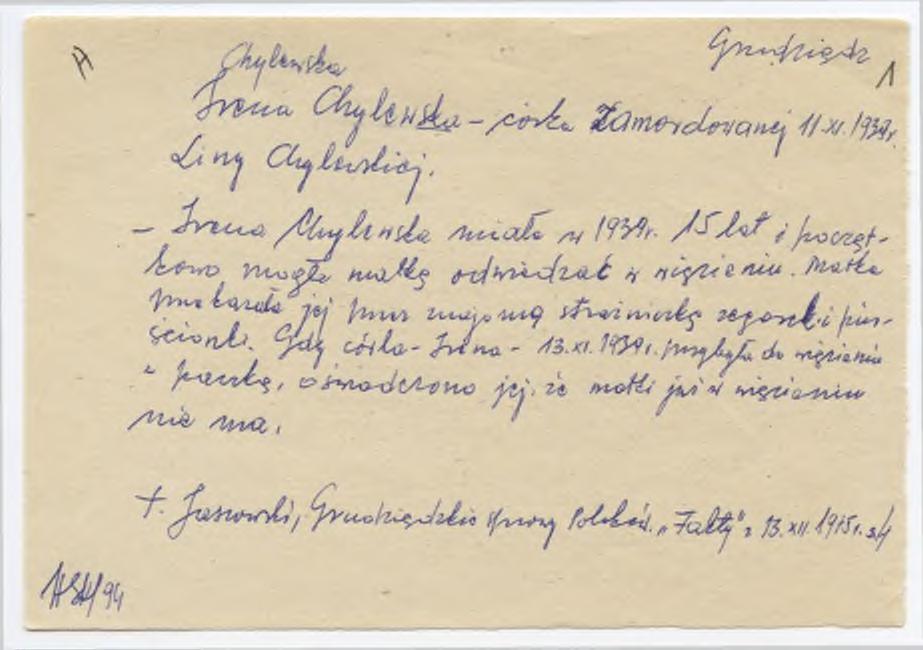 A
Grudziądz
1
Chylewska
Irena Chylewska – córka zamordowanej 11.XI.1939r.
Liny Chylewskiej.
– Irena Chylewska miała w 1939r. 15 lat i począt-
kowo mogła matkę odwiedzać w więzieniu. Matka
przekazała jej przez znajomą strażniczkę zegarek i pier-
ścionki. Gdy córka – Irena – 13.XI.1939r. przybyła do więzienia
z paczką, oświadczono jej, że matki już w więzieniu
nie ma.
T. Jaszowski, Grudziądzkie Polaków. „Fakty" z 13.XII.1975r. s.4
/94